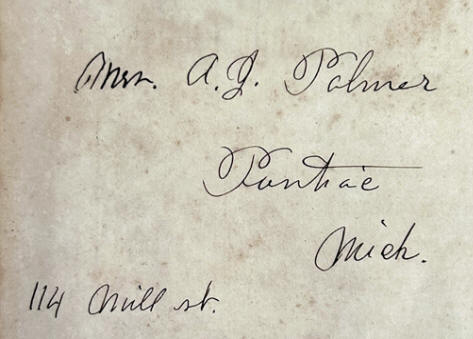 Mrs. A. J. Palmer
Pontiac
Mich.
114 Mill st.